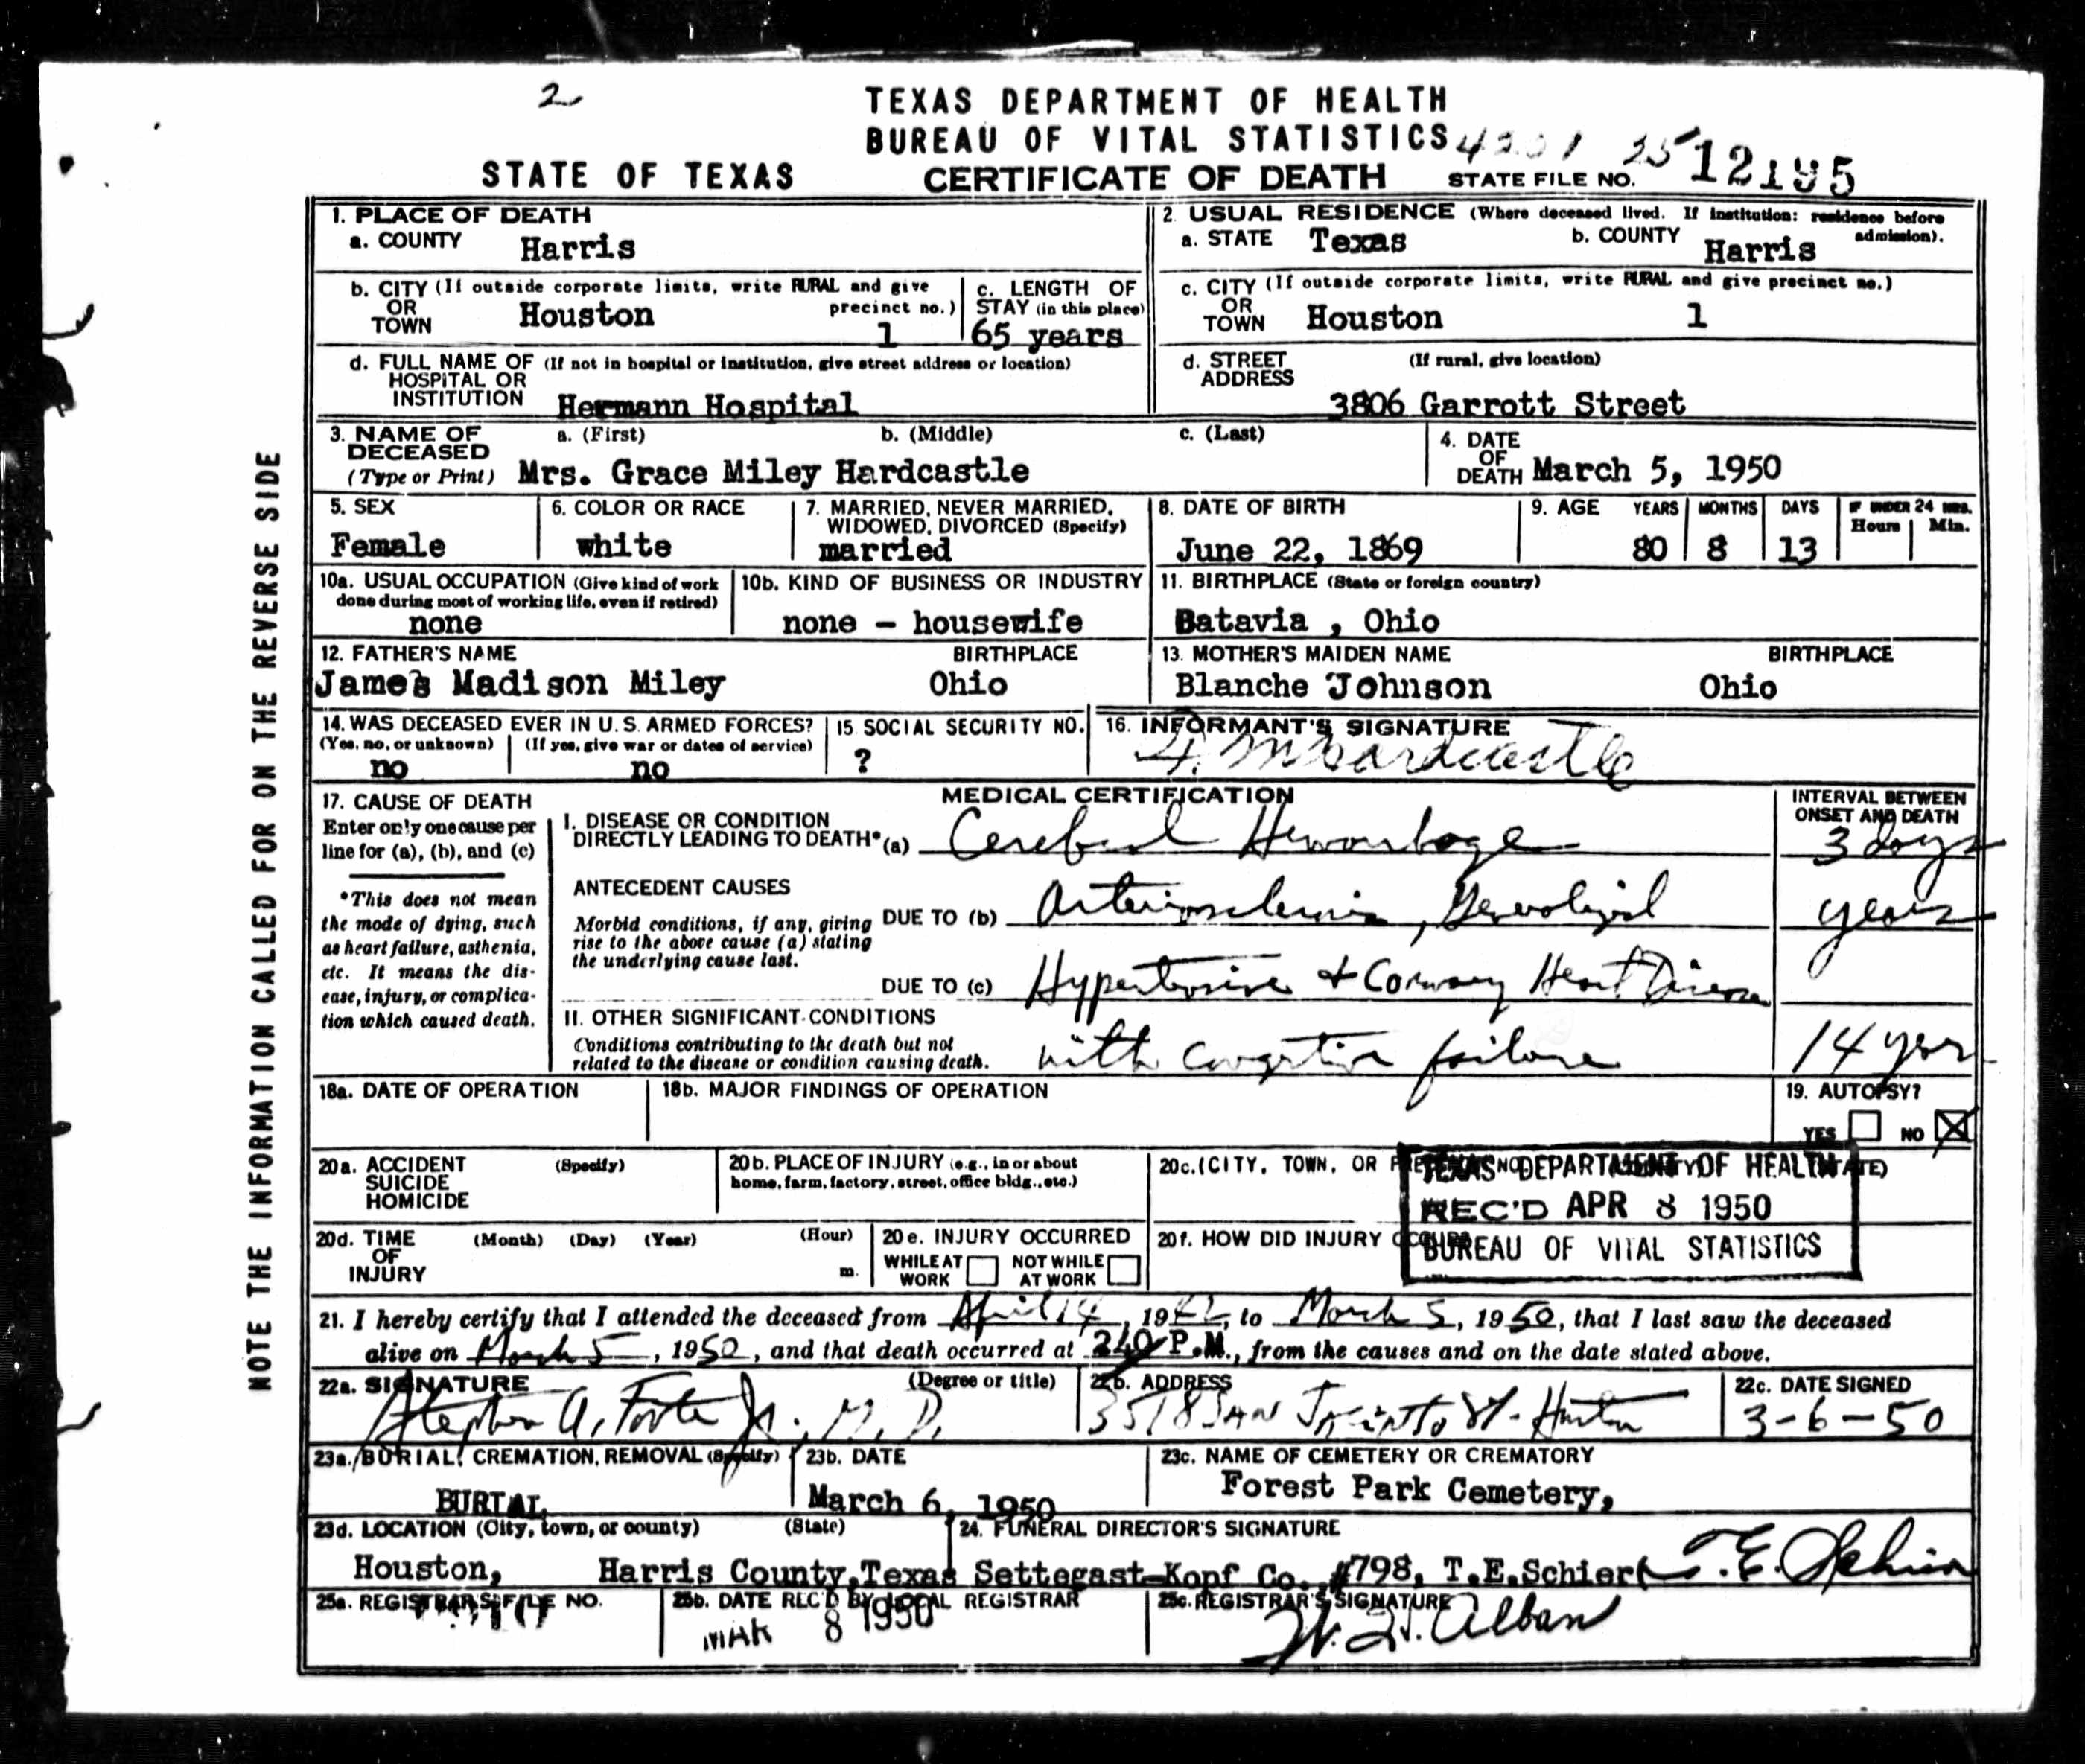 2
TEXAS DEPARTMENT OF HEALTH
BUREAU OF VITAL STATISTICS
STATE OF TEXAS CERTIFICATE OF DEATH STATE FILE NO. 12195
NOTE THE INFORMATION CALLED FOR ON THE REVERSE SIDE
1. PLACE OF DEATH
a. COUNTY Harris
2. USUAL RESIDENCE (Where deceased lived. If institution: residence before admission).
a. STATE Texas b. COUNTY Harris
b. CITY (If outside corporate limits, write RURAL and give precinct no.)
OR TOWN Houston 1
c. LENGTH OF STAY (in this place) 65 years
c. CITY (If outside corporate limits, write RURAL and give precinct no.)
OR TOWN Houston 1
d. FULL NAME OF (If not in hospital or institution, give street address or location)
HOSPITAL OR INSTITUTION Hermann Hospital
d. STREET ADDRESS (If rural, give location)
3806 Garrott Street
3. NAME OF DECEASED a. (First) b. (Middle) c. (Last)
(Type or Print) Mrs. Grace Miley Hardcastle
4. DATE OF DEATH March 5, 1950
5. SEX Female
6. COLOR OR RACE white
7. MARRIED, NEVER MARRIED, WIDOWED, DIVORCED (Specify) married
8. DATE OF BIRTH June 22, 1869
9. AGE YEARS 80 MONTHS 8 DAYS 13 IF UNDER 24 HRS. Hours Min.
10a. USUAL OCCUPATION (Give kind of work done during most of working life, even if retired)
none
10b. KIND OF BUSINESS OR INDUSTRY
none - housewife
11. BIRTHPLACE (State or foreign country)
Batavia , Ohio
12. FATHER'S NAME BIRTHPLACE
James Madison Miley Ohio
13. MOTHER'S MAIDEN NAME BIRTHPLACE
Blanche Johnson Ohio
14. WAS DECEASED EVER IN U.S. ARMED FORCES?
(Yes, no, or unknown) (If yes, give war or dates of service)
no no
15 SOCIAL SECURITY NO.
?
16. INFORMANT'S SIGNATURE
Hardcastle
17. CAUSE OF DEATH
Enter only one cause per line for (a), (b), and (c)
*This does not mean the mode of dying, such as heart failure, asthenia, etc. It means the disease, injury, or complication which caused death.
MEDICAL CERTIFICATION
INTERVAL BETWEEN ONSET AND DEATH
I. DISEASE OR CONDITION DIRECTLY LEADING TO DEATH* (a) Cerebral Hemorrhage 3 days
ANTECEDENT CAUSES
Morbid conditions, if any, giving rise to the above cause (a) stating the underlying cause last.
DUE TO (b) Arteriosclerosis, Generalized years
DUE TO (c) Hypertensive + Coronary Heart Disease
II. OTHER SIGNIFICANT CONDITIONS
Conditions contributing to the death but not related to the disease or condition causing death.
with congestive failure 14 years
18a. DATE OF OPERATION
18b. MAJOR FINDINGS OF OPERATION
19. AUTOPSY?
YES NO X
20a. ACCIDENT SUICIDE HOMICIDE (Specify)
20b. PLACE OF INJURY (e.g., in or about home, farm, factory, street, office bldg., etc.)
20c. (CITY, TOWN, OR
TEXAS DEPARTMENT OF HEALTH
REC'D APR 8 1950
BUREAU OF VITAL STATISTICS
20d. TIME OF INJURY (Month) (Day) (Year) (Hour) m.
20e. INJURY OCCURRED
WHILE AT WORK NOT WHILE AT WORK
20f. HOW DID INJURY OCCUR?
21. I hereby certify that I attended the deceased from April 14, 1942, to March 5, 1950, that I last saw the deceased
alive on March 5, 1950, and that death occurred at 240 P.M., from the causes and on the date stated above.
22a. SIGNATURE (Degree or title)
Stephen A. Foote Jr. M.D.
22b. ADDRESS
3518 San Jacinto St. Houston
22c. DATE SIGNED
3-6-50
23a. BURIAL, CREMATION, REMOVAL (Specify)
BURIAL
23b. DATE
March 6, 1950
23c. NAME OF CEMETERY OR CREMATORY
Forest Park Cemetery,
23d. LOCATION (City, town, or county) (State)
Houston, Harris County, Texas
24. FUNERAL DIRECTOR'S SIGNATURE
Settegast-Kopf Co., #798, T.E.Schier
25a. REGISTRAR'S FILE NO.
25b. DATE REC'D BY LOCAL REGISTRAR
MAR 8 1950
25c. REGISTRAR'S SIGNATURE
W. H. Alban